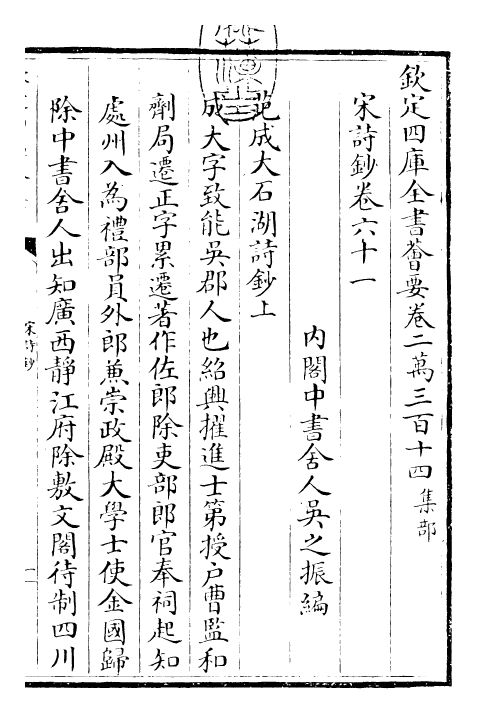 欽定四庫全書薈要卷二萬三百十四 集部
宋詩鈔卷六十一
內閣中書舍人吳之振編
范成大石湖詩鈔上
成大字致能吳郡人也紹興擢進士第授戶曹監和
劑局遷正字累遷著作佐郎除吏部郎官奉祠起知
處州入為禮部員外郎兼崇政殿大學士使金國歸
除中書舍人出知廣西靜江府除敷文閣待制四川
宋詩鈔